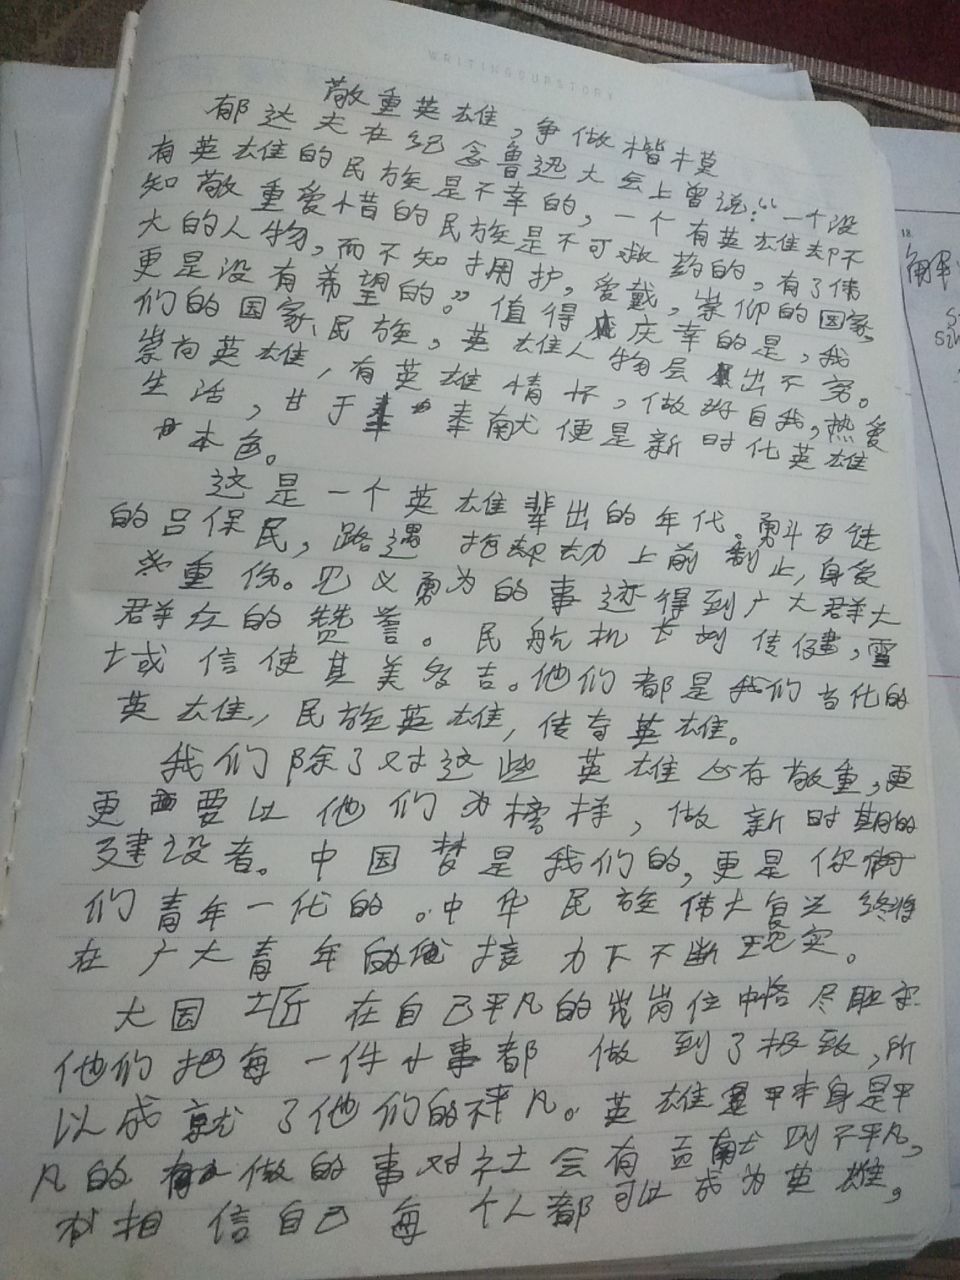 WRITINGOURSTORY
敬重英雄，争做楷模
郁达夫在纪念鲁迅大会上曾说：“一个没
有英雄的民族是不幸的，一个有英雄却不
知敬重爱惜的民族是不可救药的，有了伟
大的人物，而不知拥护，爱戴，崇仰的国家，
更是没有希望的。”值得庆幸的是，我
们的国家、民族，英雄人物层出不穷。
崇尚英雄，有英雄情怀，做好自我，热爱
生活，甘于奉献便是新时代英雄
本色。
这是一个英雄辈出的年代。勇斗歹徒
的吕保民，路遇抢劫上前制止，身受
重伤。见义勇为的事迹得到广大群大
群众的赞誉。民航机长刘传健，雪
域信使其美多吉。他们都是我们当代的
英雄，民族英雄，传奇英雄。
我们除了对这些英雄心存敬重，更
更要以他们为榜样，做新时期的
建设者。中国梦是我们的，更是你们
们青年一代的。中华民族伟大复兴终将
在广大青年的接力下不断现实。
大国工匠在自己平凡的岗位中恪尽职守
他们把每一件小事都做到了极致，所
以成就了他们的不凡。英雄本身是平
凡的做的事对社会有贡献则不平凡，
相信自己每个人都可以成为英雄，
18.
解